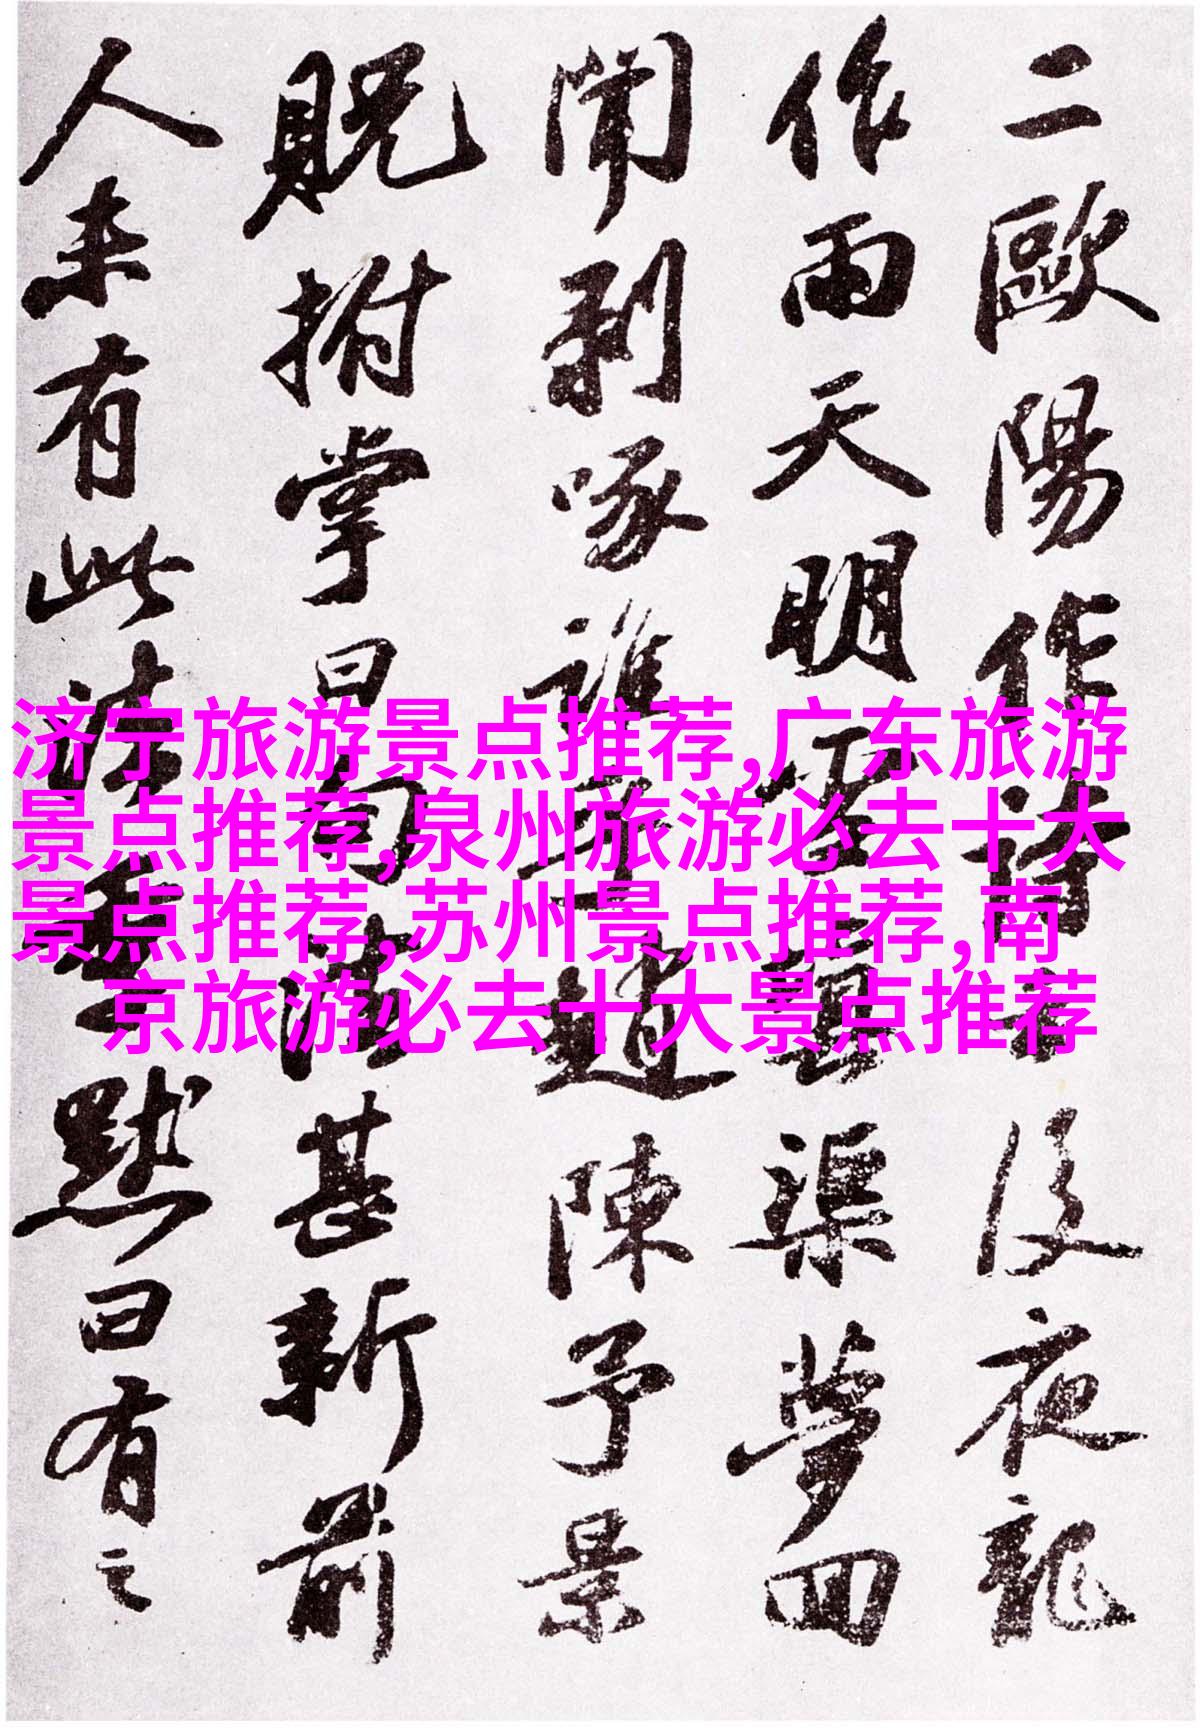 二歐陽作詩云後夜龍
作雨天明雪填渠夢回
聞剥啄誰乎趙陳予景
貺拊掌曰句法甚新前
人未有此法季默曰有之
济宁旅游景点推荐,广东旅游
景点推荐,泉州旅游必去十大
景点推荐,苏州景点推荐,南
京旅游必去十大景点推荐